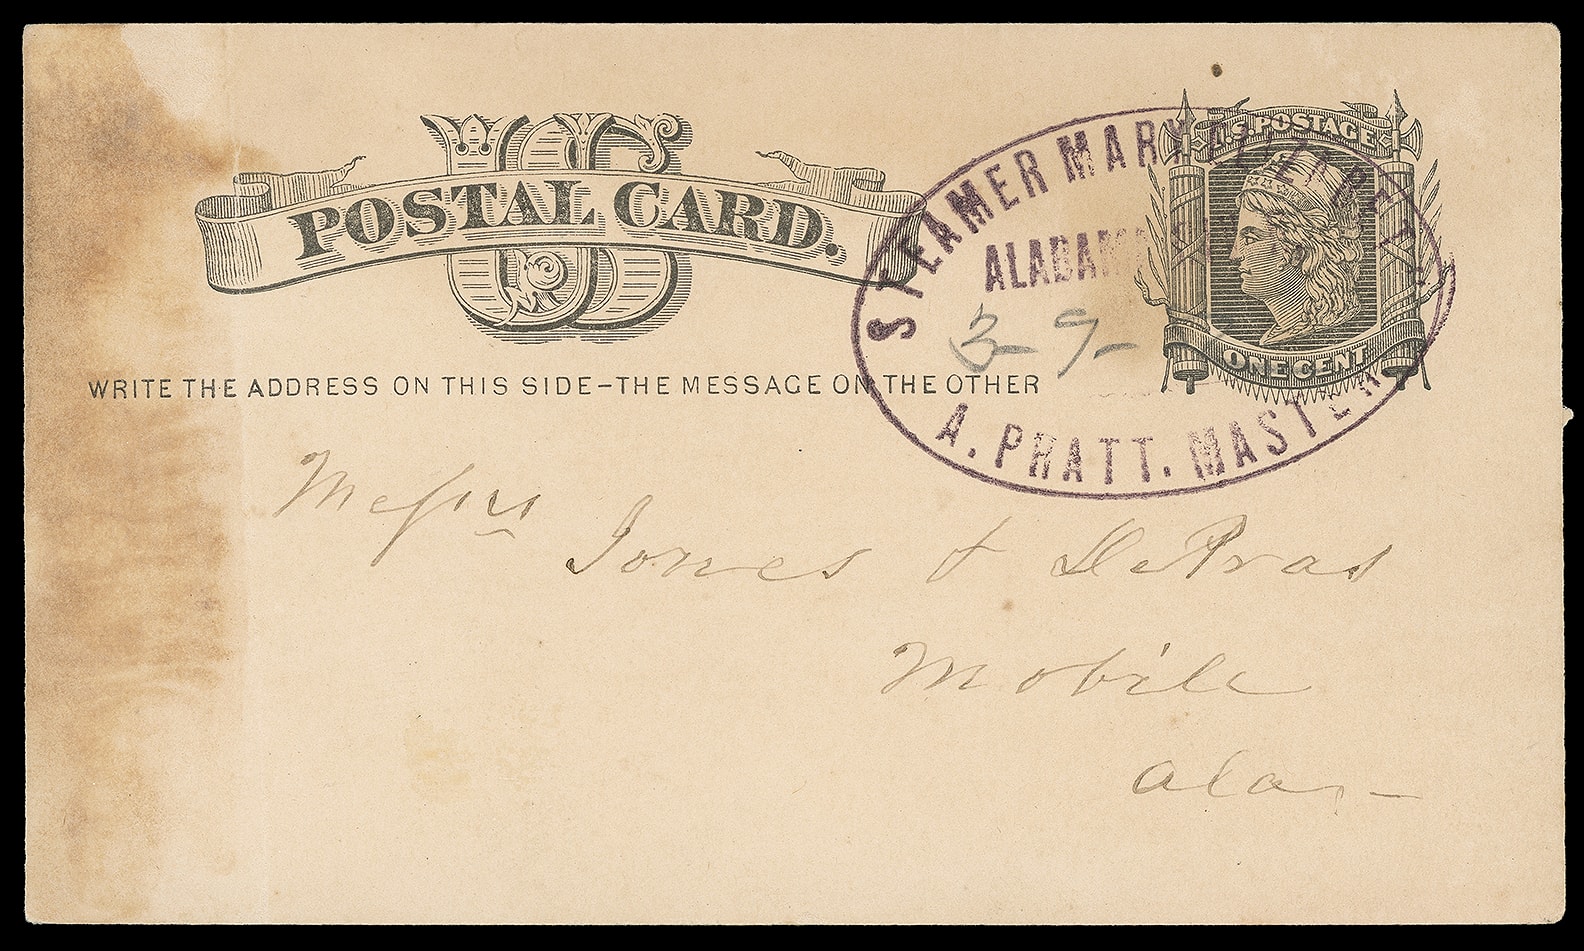 US
POSTAL CARD.
WRITE THE ADDRESS ON THIS SIDE–THE MESSAGE ON THE OTHER
U.S. POSTAGE
ONE CENT
STEAMER MARY ELIZABETH
ALABAMA
3-9-
A. PRATT. MASTER
Messrs
Jones &
Mobile
Ala-